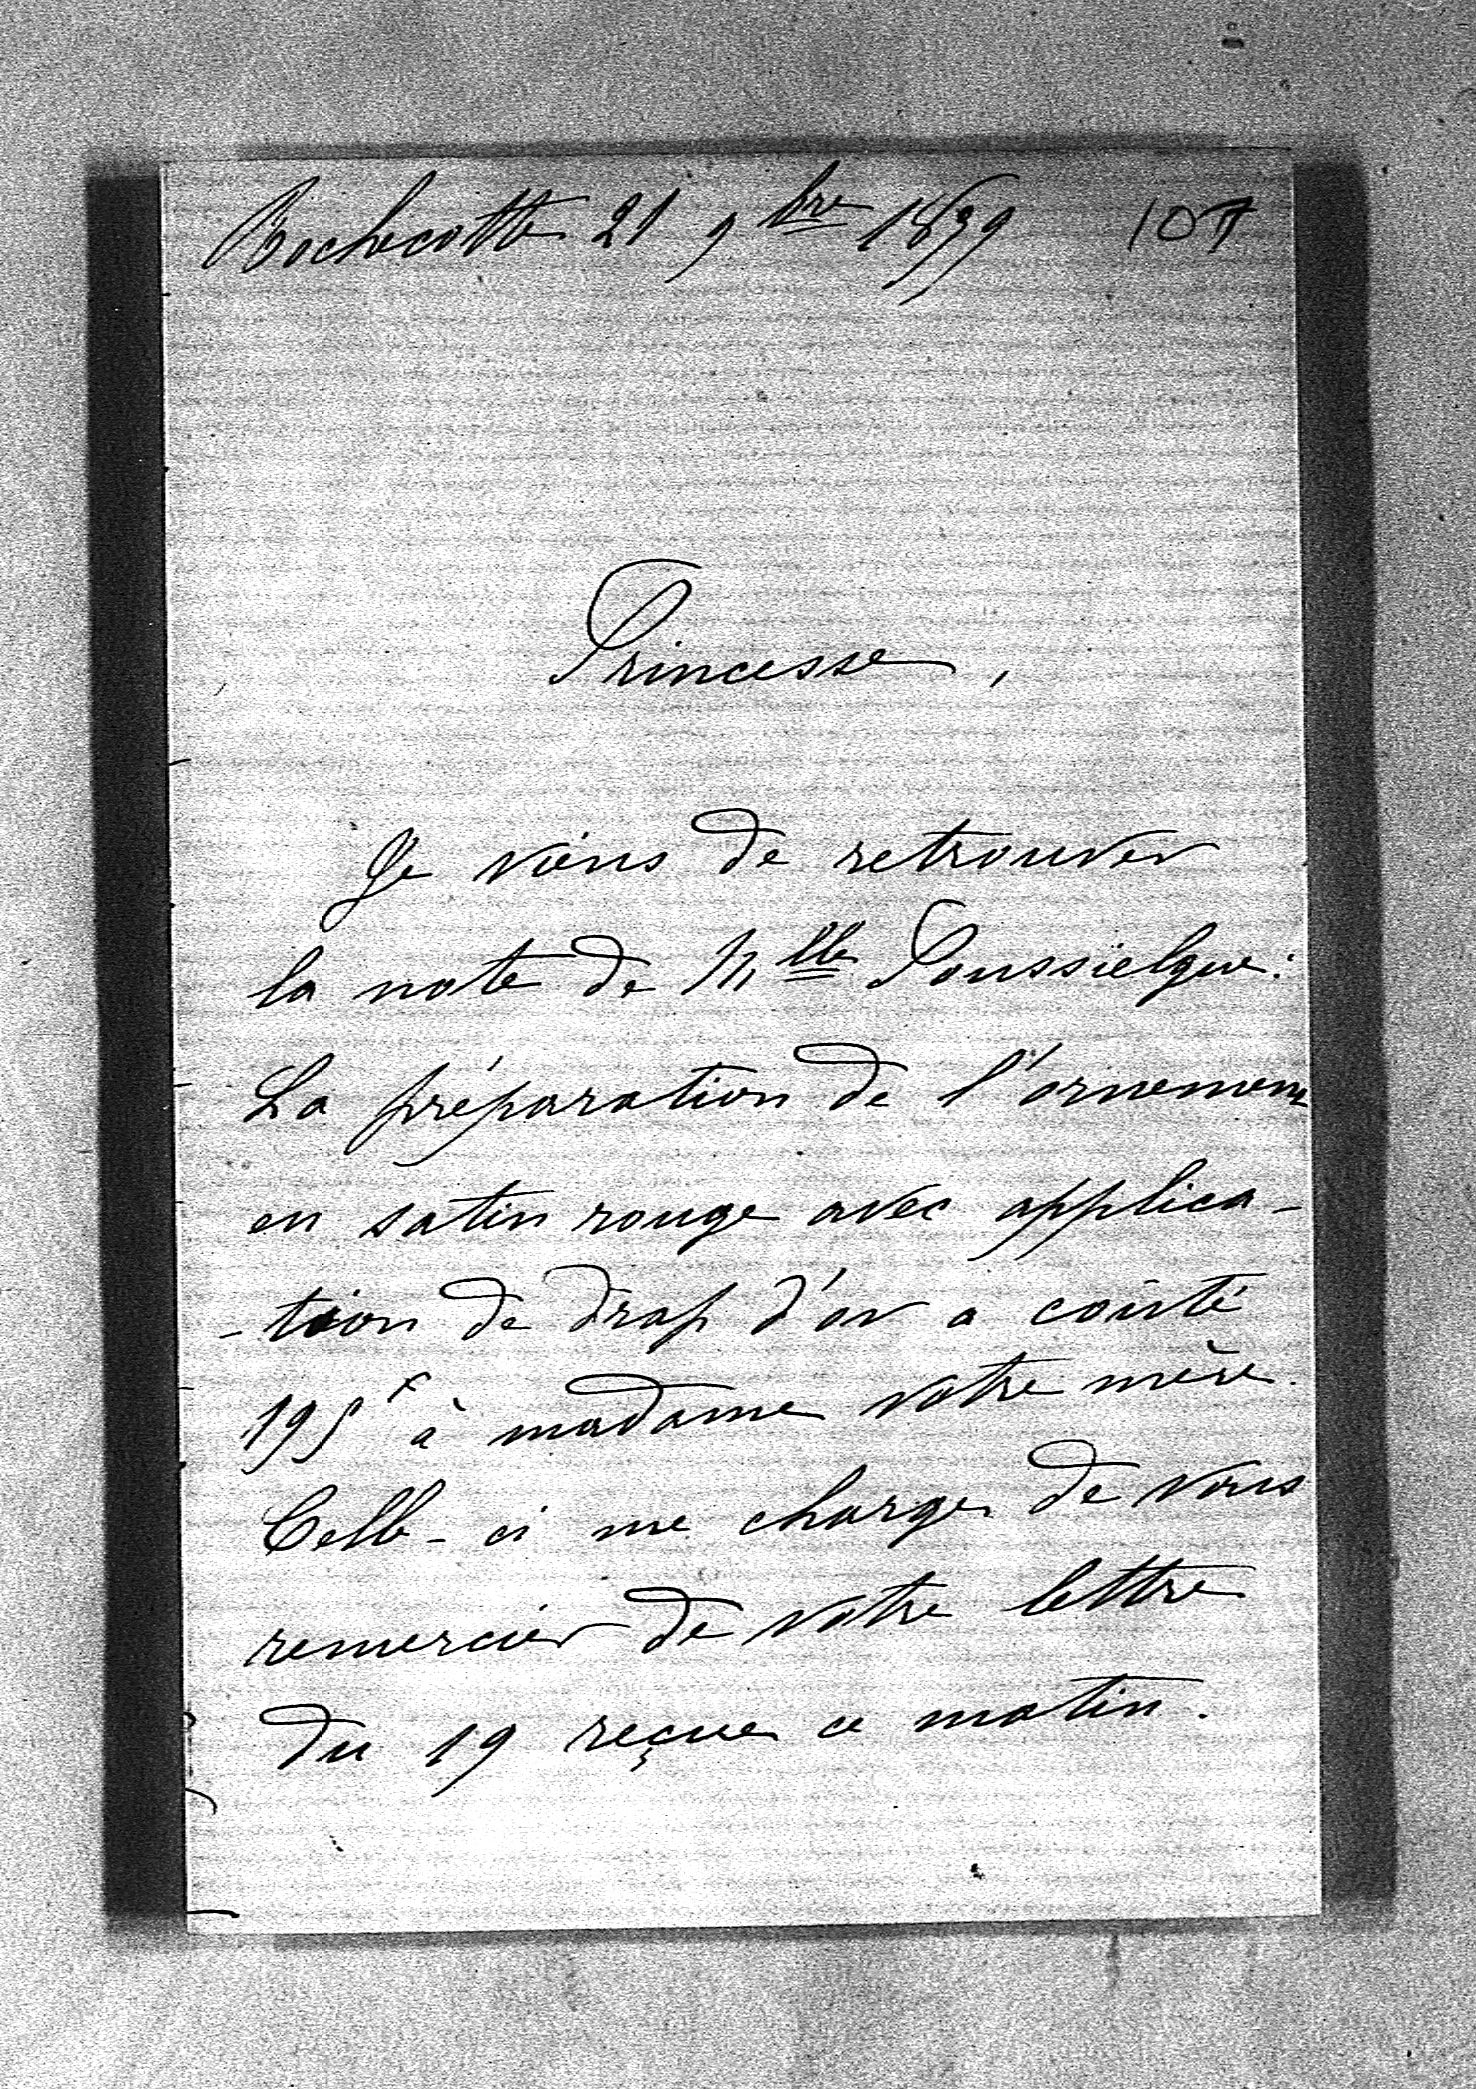 Rochecotte 21 9bre 1899 107
Princesse,
Je viens de retrouver
la note de Mlle Poussielgue:
La préparation de l'ornement
en satin rouge avec applica-
-tion de drap d'or a coûté
195f à madame votre mère.
Celle-ci me charge de vous
remercier de votre lettre
du 19 reçue ce matin.